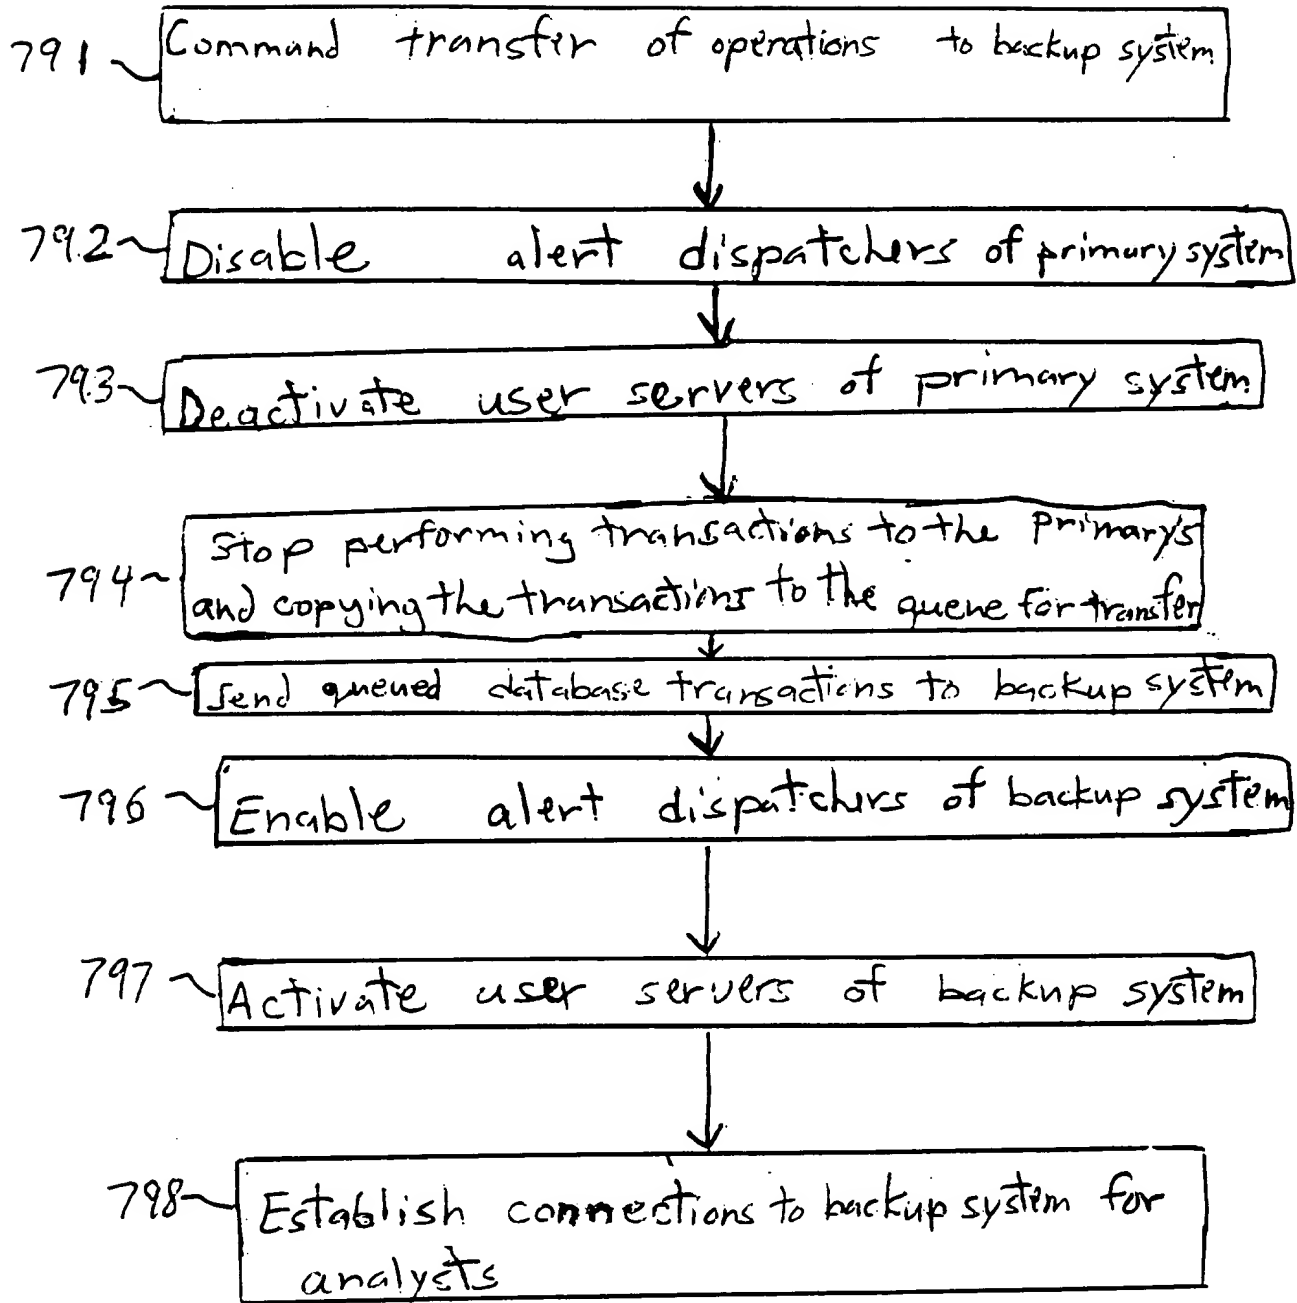 791 Command transfer of operations to backup system
792 Disable alert dispatchers of primary system
793 Deactivate user servers of primary system
Stop performing transactions to the primary's
794 and copying the transactions to the queue for transfer
795 Send queued database transactions to backup system
796 Enable alert dispatchers of backup system
797 Activate user servers of backup system
798 Establish connections to backup system for
analysts